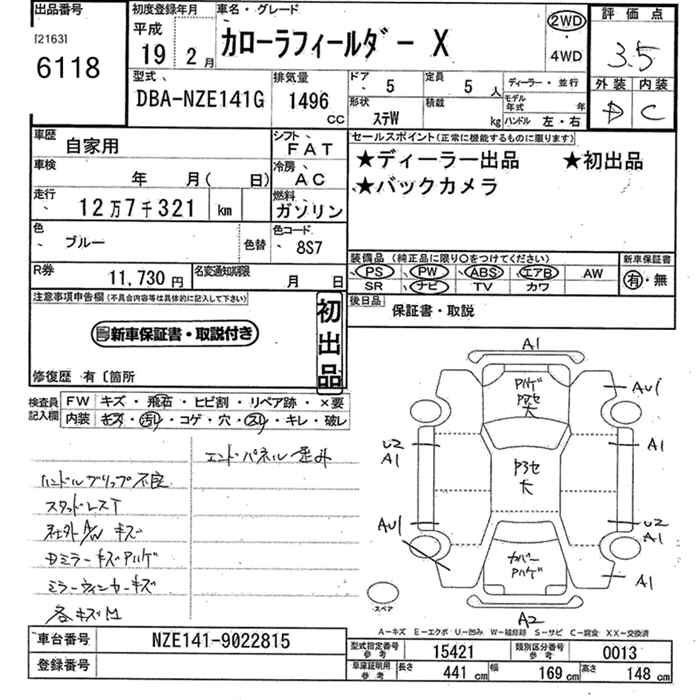 出品番号
[2163]
6118
初度登録年月
平成
19年2月
車名・グレード
カローラフィールダー X
2WD
・
4WD
評価点
3.5
外装 内装
D C
型式
DBA-NZE141G
排気量
1496 CC
ドア 5
定員 5 人
ディーラー・並行
形状 ステW
積載 kg
モデル年式 年
ハンドル 左・右
車歴 自家用
シフト FAT
車検 年 月( 日)
冷房 AC
走行 12万7千321 km
燃料 ガソリン
色 ブルー
色替
色コード 8S7
R券 11,730 円
名変通知期限 月 日
セールスポイント(正常に機能するものに限ります)
★ディーラー出品 ★初出品
★バックカメラ
装備品(純正品に限り○をつけてください)
PS PW ABS エアB AW
SR ナビ TV カワ
新車保証書
有・無
後日品 保証書・取説
注意事項申告欄(不具合内容等は具体的に記入して下さい)
新車保証書・取説付き
初出品
修復歴 有〔箇所
検査員記入欄
FW キズ・飛石・ヒビ割・リペア跡・×要
内装 キズ・汚れ・コゲ・穴・スレ・キレ・破レ
エンドパネル歪み
ハンドルグリップ不良
スタッドレスT
社外A/W キズ
Dミラーキズ アハゲ
ミラーウィンカーキズ
各キズ凹
A1
AU1
A1
U2
A1
AU1
U2
A1
A1
A2
スペア
A-キズ E-エクボ U-凹み W-補修跡 S-サビ C-腐食 XX-交換済
車台番号 NZE141-9022815
登録番号
型式指定番号 参考 15421
類別区分番号 参考 0013
車庫証明用 参考 長さ 441 cm 幅 169 cm 高さ 148 cm